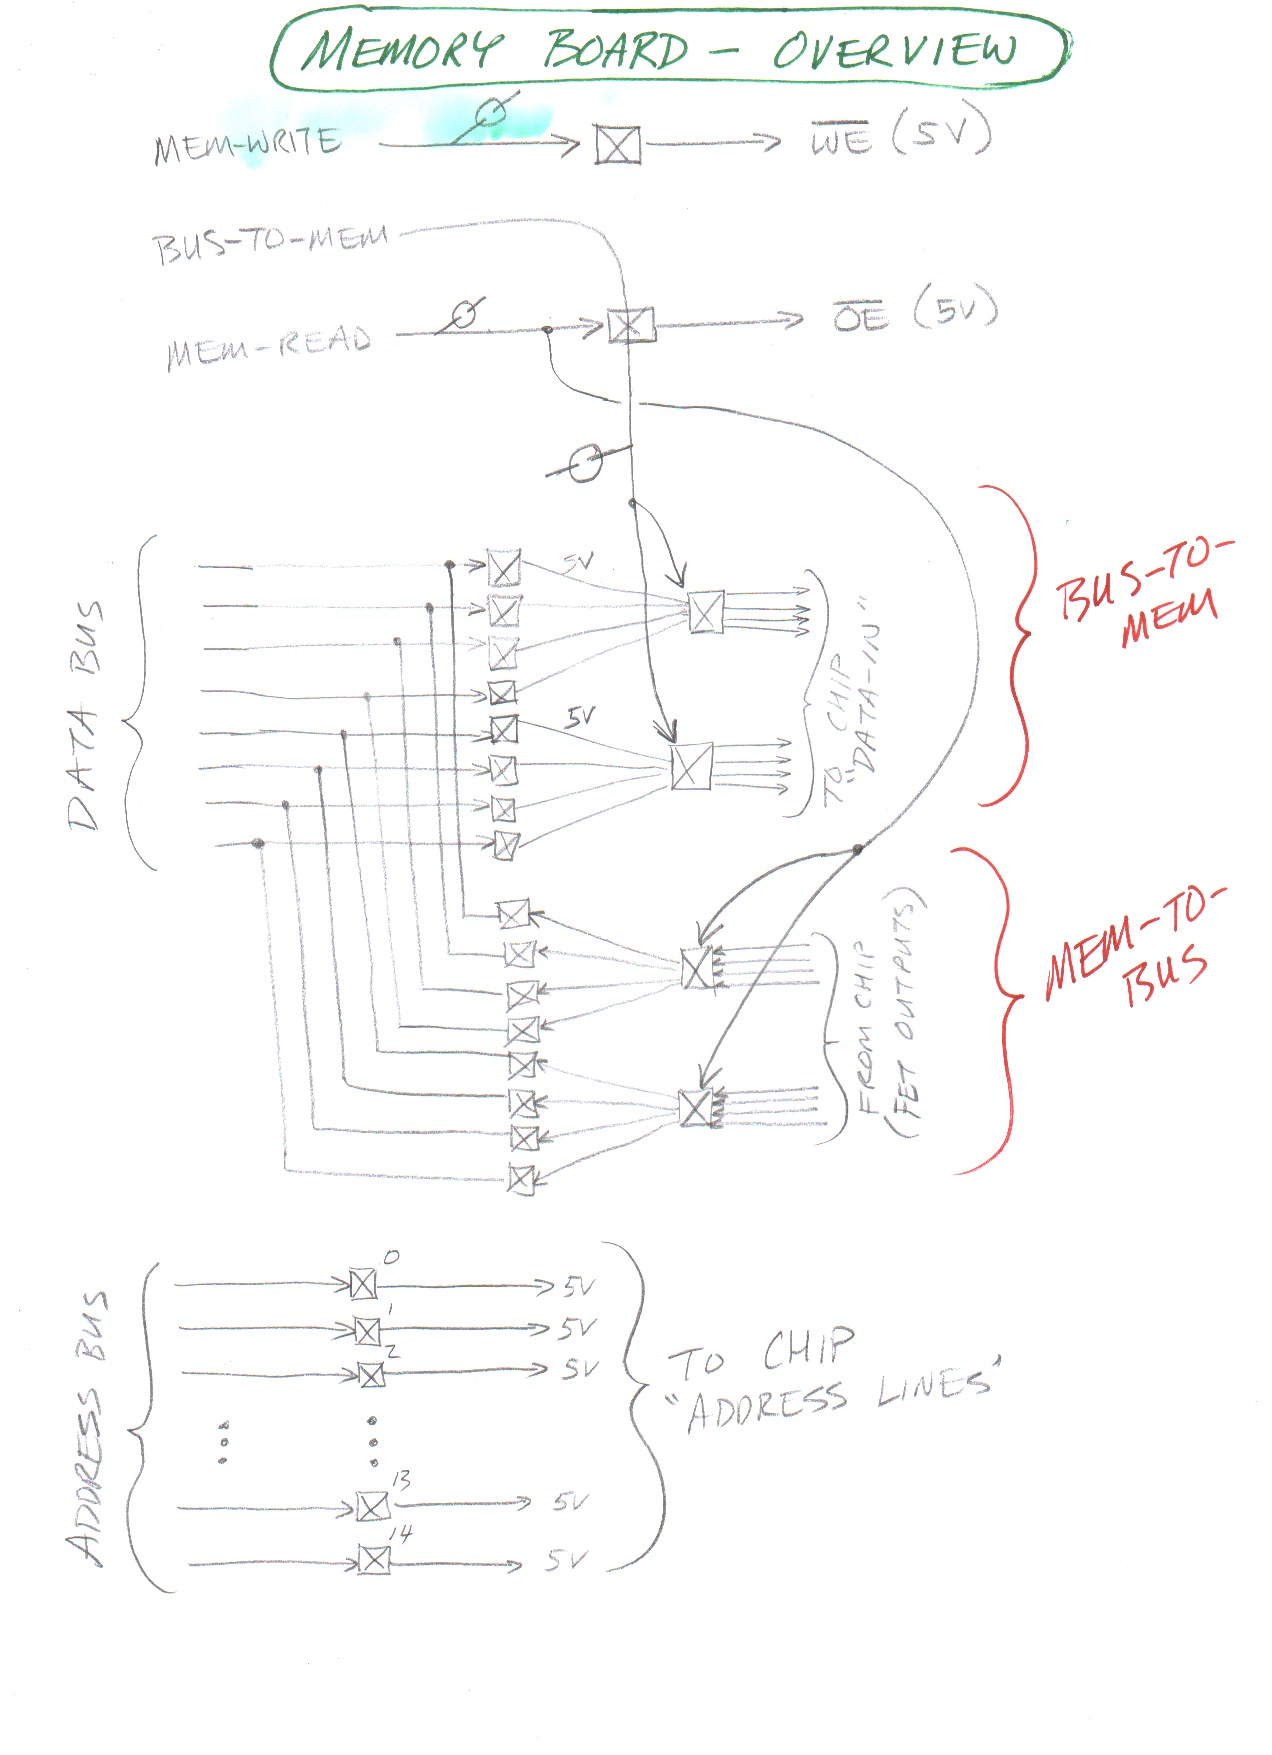 MEMORY BOARD - OVERVIEW
MEM-WRITE
W̅E̅ (5V)
BUS-TO-MEM
MEM-READ
O̅E̅ (5V)
DATA BUS
5V
5V
TO CHIP
"DATA-IN"
BUS-TO-
MEM
FROM CHIP
(FET OUTPUTS)
MEM-TO-
BUS
ADDRESS BUS
0
5V
1
5V
2
5V
13
5V
14
5V
TO CHIP
"ADDRESS LINES"